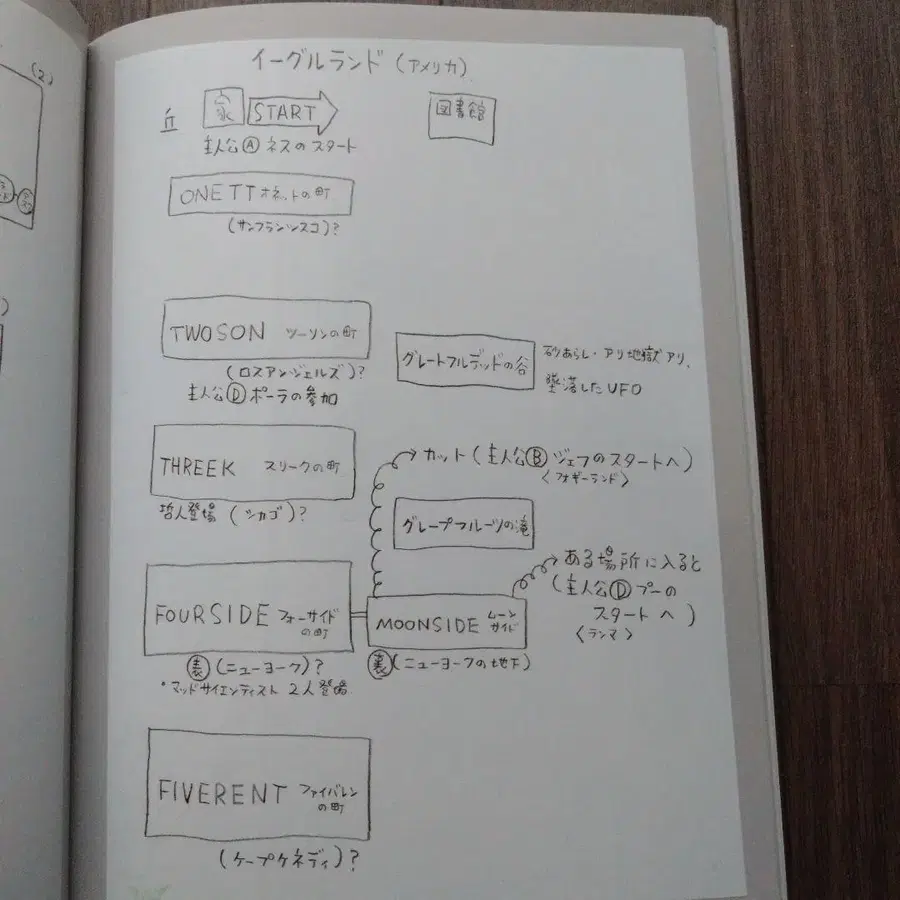 イーグルランド（アメリカ）
丘 家 START
図書館
主人公Ⓐ ネスのスタート
ONETT オネットの町
（サンフランシスコ）？
TWOSON ツーソンの町
（ロスアンジェルズ）？
主人公Ⓓ ポーラの参加
グレートフルデッドの谷
砂あらし・アリ地獄アリ、
墜落したUFO
THREEK スリークの町
哲人登場 （シカゴ）？
カット（主人公Ⓑ ジェフのスタートへ）
〈フォギーランド〉
グレープフルーツの滝
FOURSIDE フォーサイド
の町
裏（ニューヨーク）？
・マッドサイエンティスト 2人登場
MOONSIDE ムーン
サイド
裏（ニューヨークの地下）
ある場所に入ると
（主人公Ⓓ プーの
スタートへ）
〈ランマ〉
FIVERENT ファイバレン
の町
（ケープケネディ）？
(2)